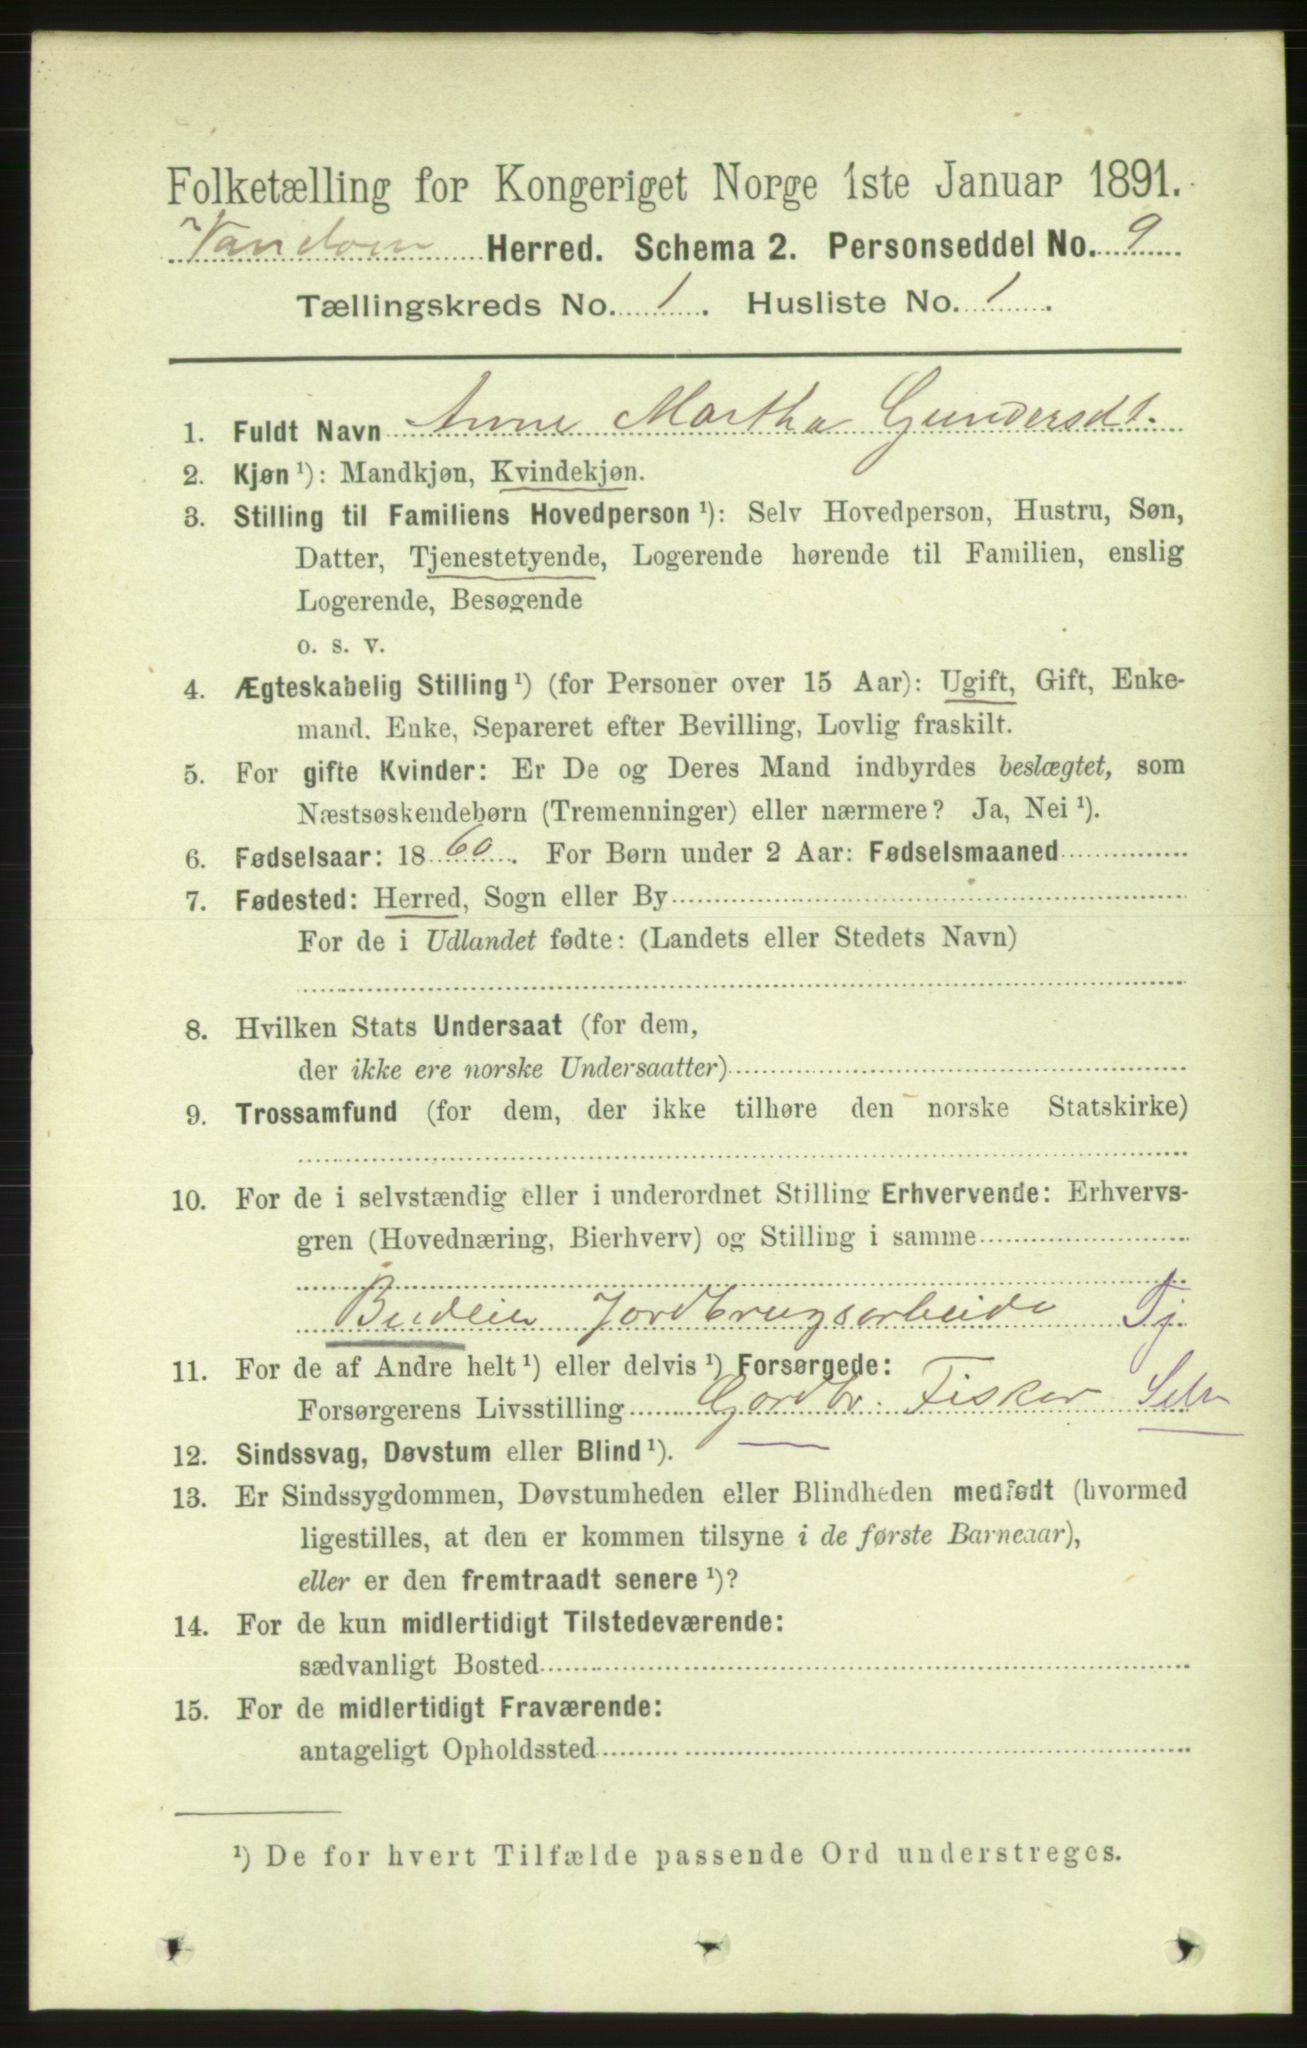 Folketælling for Kongeriget Norge 1ste Januar 1891.
Herred. Schema 2. Personseddel No. 9
Tællingskreds No. 1. Husliste No. 1.
1. Fuldt Navn Anne Martha Gundersdt.
2. Kjøn ¹): Mandkjøn, Kvindekjøn.
3. Stilling til Familiens Hovedperson ¹): Selv Hovedperson, Hustru, Søn,
Datter, Tjenestetyende, Logerende hørende til Familien, enslig
Logerende, Besøgende
o. s. v.
4. Ægteskabelig Stilling ¹) (for Personer over 15 Aar): Ugift, Gift, Enke-
mand. Enke, Separeret efter Bevilling, Lovlig fraskilt.
5. For gifte Kvinder: Er De og Deres Mand indbyrdes beslægtet, som
Næstsøskendebørn (Tremenninger) eller nærmere? Ja, Nei ¹).
6. Fødselsaar: 1860. For Børn under 2 Aar: Fødselsmaaned
7. Fødested: Herred, Sogn eller By
For de i Udlandet fødte: (Landets eller Stedets Navn)
8. Hvilken Stats Undersaat (for dem,
der ikke ere norske Undersaatter)
9. Trossamfund (for dem, der ikke tilhøre den norske Statskirke)
10. For de i selvstændig eller i underordnet Stilling Erhvervende: Erhvervs-
gren (Hovednæring, Bierhverv) og Stilling i samme
Budeie Jordbrugsarbeide Tj.
11. For de af Andre helt ¹) eller delvis ¹) Forsørgede:
Forsørgerens Livsstilling Gordbr. Fisker Selv
12. Sindssvag, Døvstum eller Blind ¹).
13. Er Sindssygdommen, Døvstumheden eller Blindheden medfødt (hvormed
ligestilles, at den er kommen tilsyne i de første Barneaar),
eller er den fremtraadt senere ¹)?
14. For de kun midlertidigt Tilstedeværende:
sædvanligt Bosted
15. For de midlertidigt Fraværende:
antageligt Opholdssted
¹) De for hvert Tilfælde passende Ord understreges.